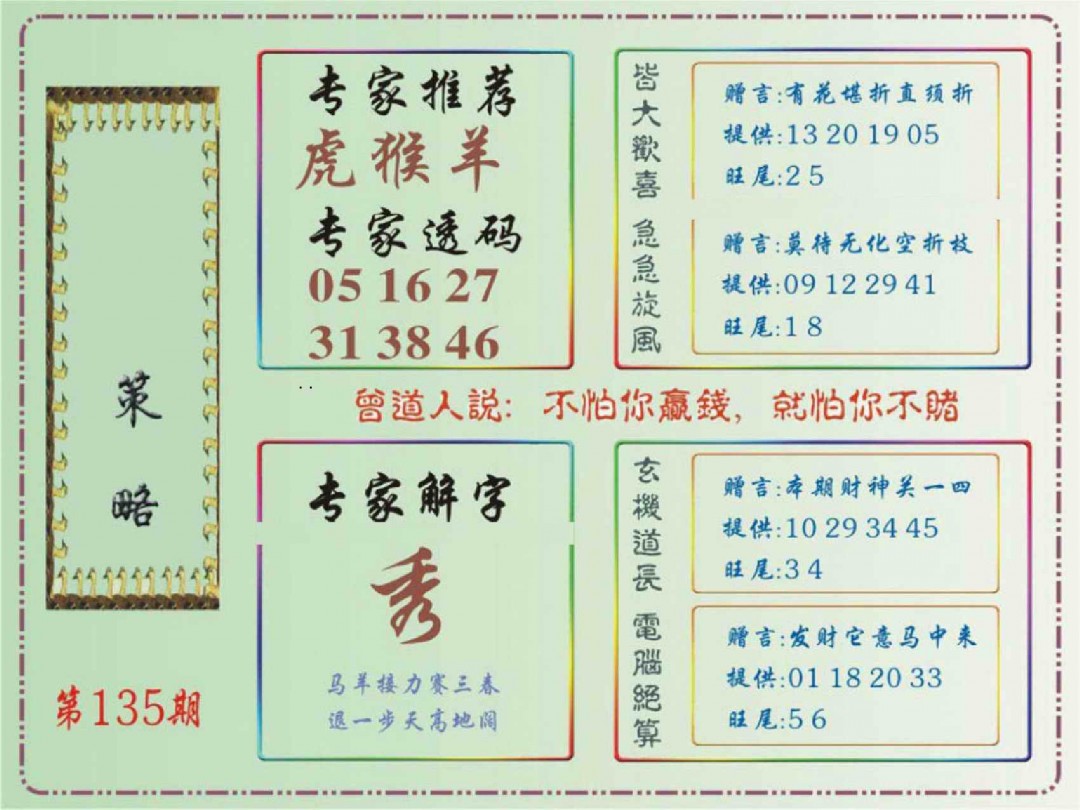 策略
第135期
专家推荐
虎猴羊
专家透码
05 16 27
31 38 46
皆大歡喜
赠言:有花堪折直须折
提供:13 20 19 05
旺尾:2 5
急急旋風
赠言:莫待无化空折枝
提供:09 12 29 41
旺尾:1 8
曾道人説: 不怕你贏錢, 就怕你不賭
专家解字
秀
马羊接力赛三春
退一步天高地阔
玄機道長
赠言:本期财神关一四
提供:10 29 34 45
旺尾:3 4
電腦絕算
赠言:发财它意马中来
提供:01 18 20 33
旺尾:5 6